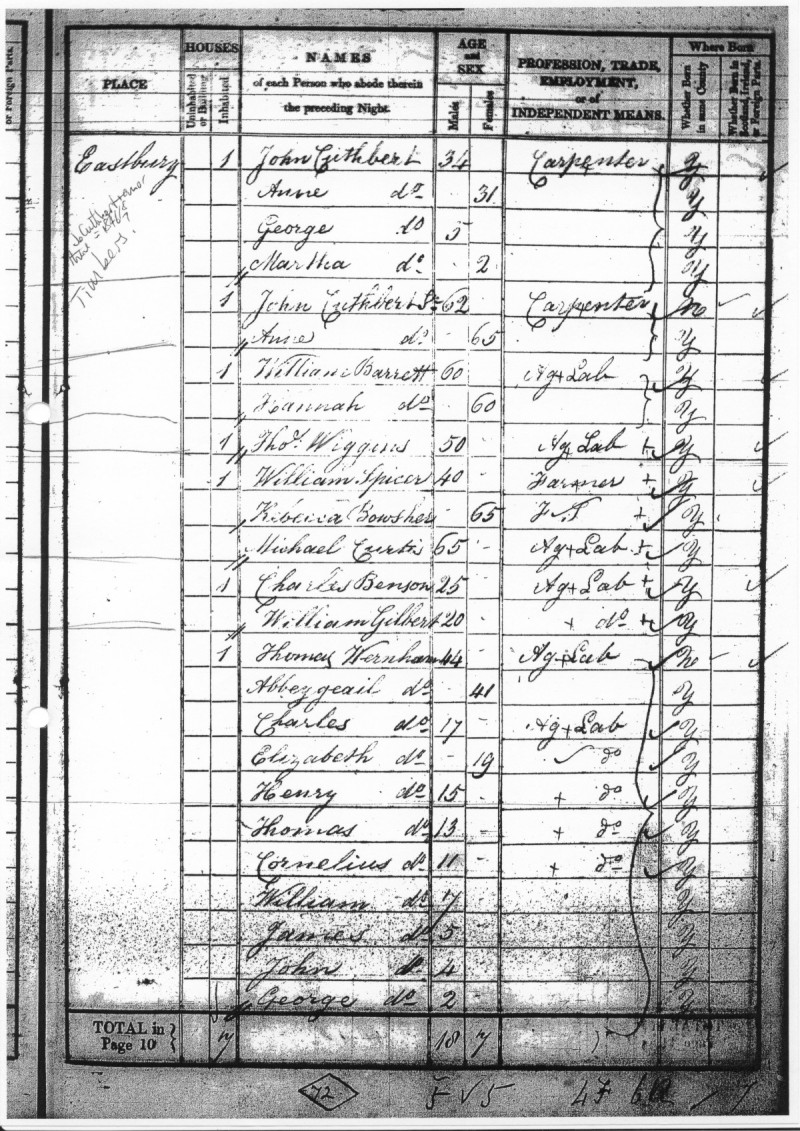 or Foreign Parts.
PLACE
HOUSES
Uninhabited or Building
Inhabited
NAMES
of each Person who abode therein
the preceding Night.
AGE and SEX
Males
Females
PROFESSION, TRADE,
EMPLOYMENT,
or of
INDEPENDENT MEANS.
Where Born
Whether Born in same County
Whether Born in Scotland, Ireland, or Foreign Parts.
Eastbury 1 John Cuthbert 34 Carpenter y
Anne do 31 y
George do 5 y
Martha do 2 y
1 John Cuthbert Sr 62 Carpenter n
Anne do 65 y
1 William Barrett 60 Ag Lab y
Hannah do 60 y
1 Thos. Wiggins 50 Ag Lab y
1 William Spicer 40 Farmer y
Rebecca Bowsher 65 F.S y
Michael Curtis 65 Ag Lab y
1 Charles Benson 25 Ag Lab y
William Gilbert 20 do y
1 Thomas Wernham 44 Ag Lab n
Abbeygeail do 41 y
Charles do 17 Ag Lab y
Elizabeth do 19 do y
Henry do 15 do y
Thomas do 13 do y
Cornelius do 11 do y
William do 7 y
James do 5 y
John do 4 y
George do 2 y
TOTAL in Page 10 } 7 18 7
72 5 √ 5 4F 6a / 7